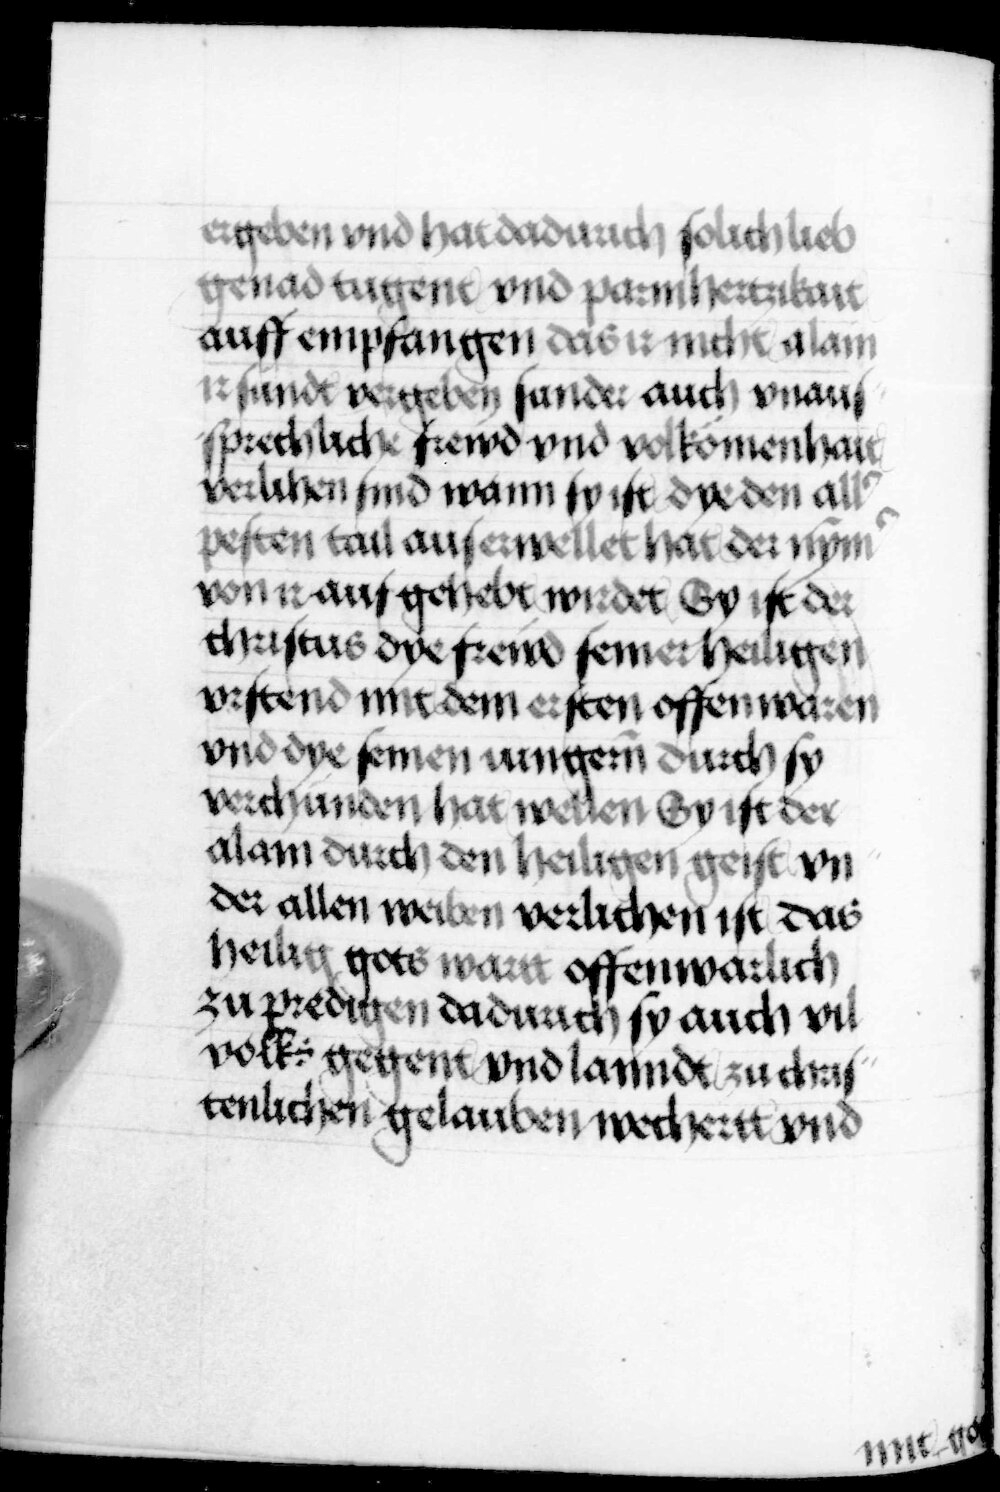 ergeben vnd hat dadurch solich lieb
genad tugent vnd parmhertzikait
auff empfangen das ir nicht alain
ir sundt vergeben sunder auch vnaus"
sprechliche frewd vnd volkömenhait
verlihen sind wann sy ist dye den all'
pesten tail auserwellet hat der nÿm'
von ir aus gehebt wirdet Sy ist der
christus dye frewd seiner heiligen
vrstend mit dem ersten offenwaren
vnd dye seinen iungern̄ durch sy
verchunden hat wellen Sy ist der
alain durch den heiligen geist vn"
der allen weiben verlichen ist das
heilig gots wartt offenwarlich
zu predigen dadurch sy auch vil
volks gegent vnd lanndt zu chris"
tenlichen gelauben wechertt vnd
mit